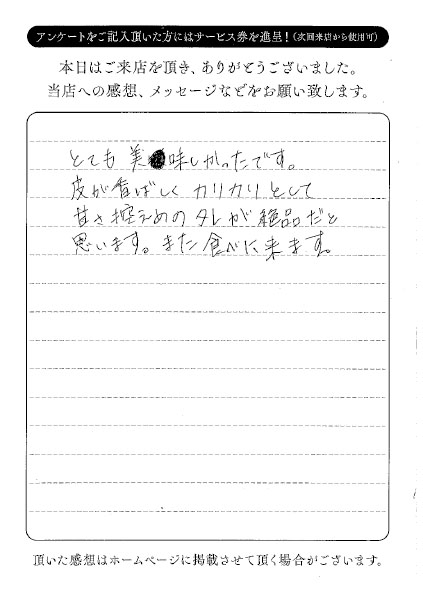 アンケートをご記入頂いた方にはサービス券を進呈!(次回来店から使用可)
本日はご来店を頂き、ありがとうございました。
当店への感想、メッセージなどをお願い致します。
とても美味しかったです。
皮が香ばしくカリカリとして
甘さ控えめのタレが絶品だと
思います。また食べに来ます。
頂いた感想はホームページに掲載させて頂く場合がございます。